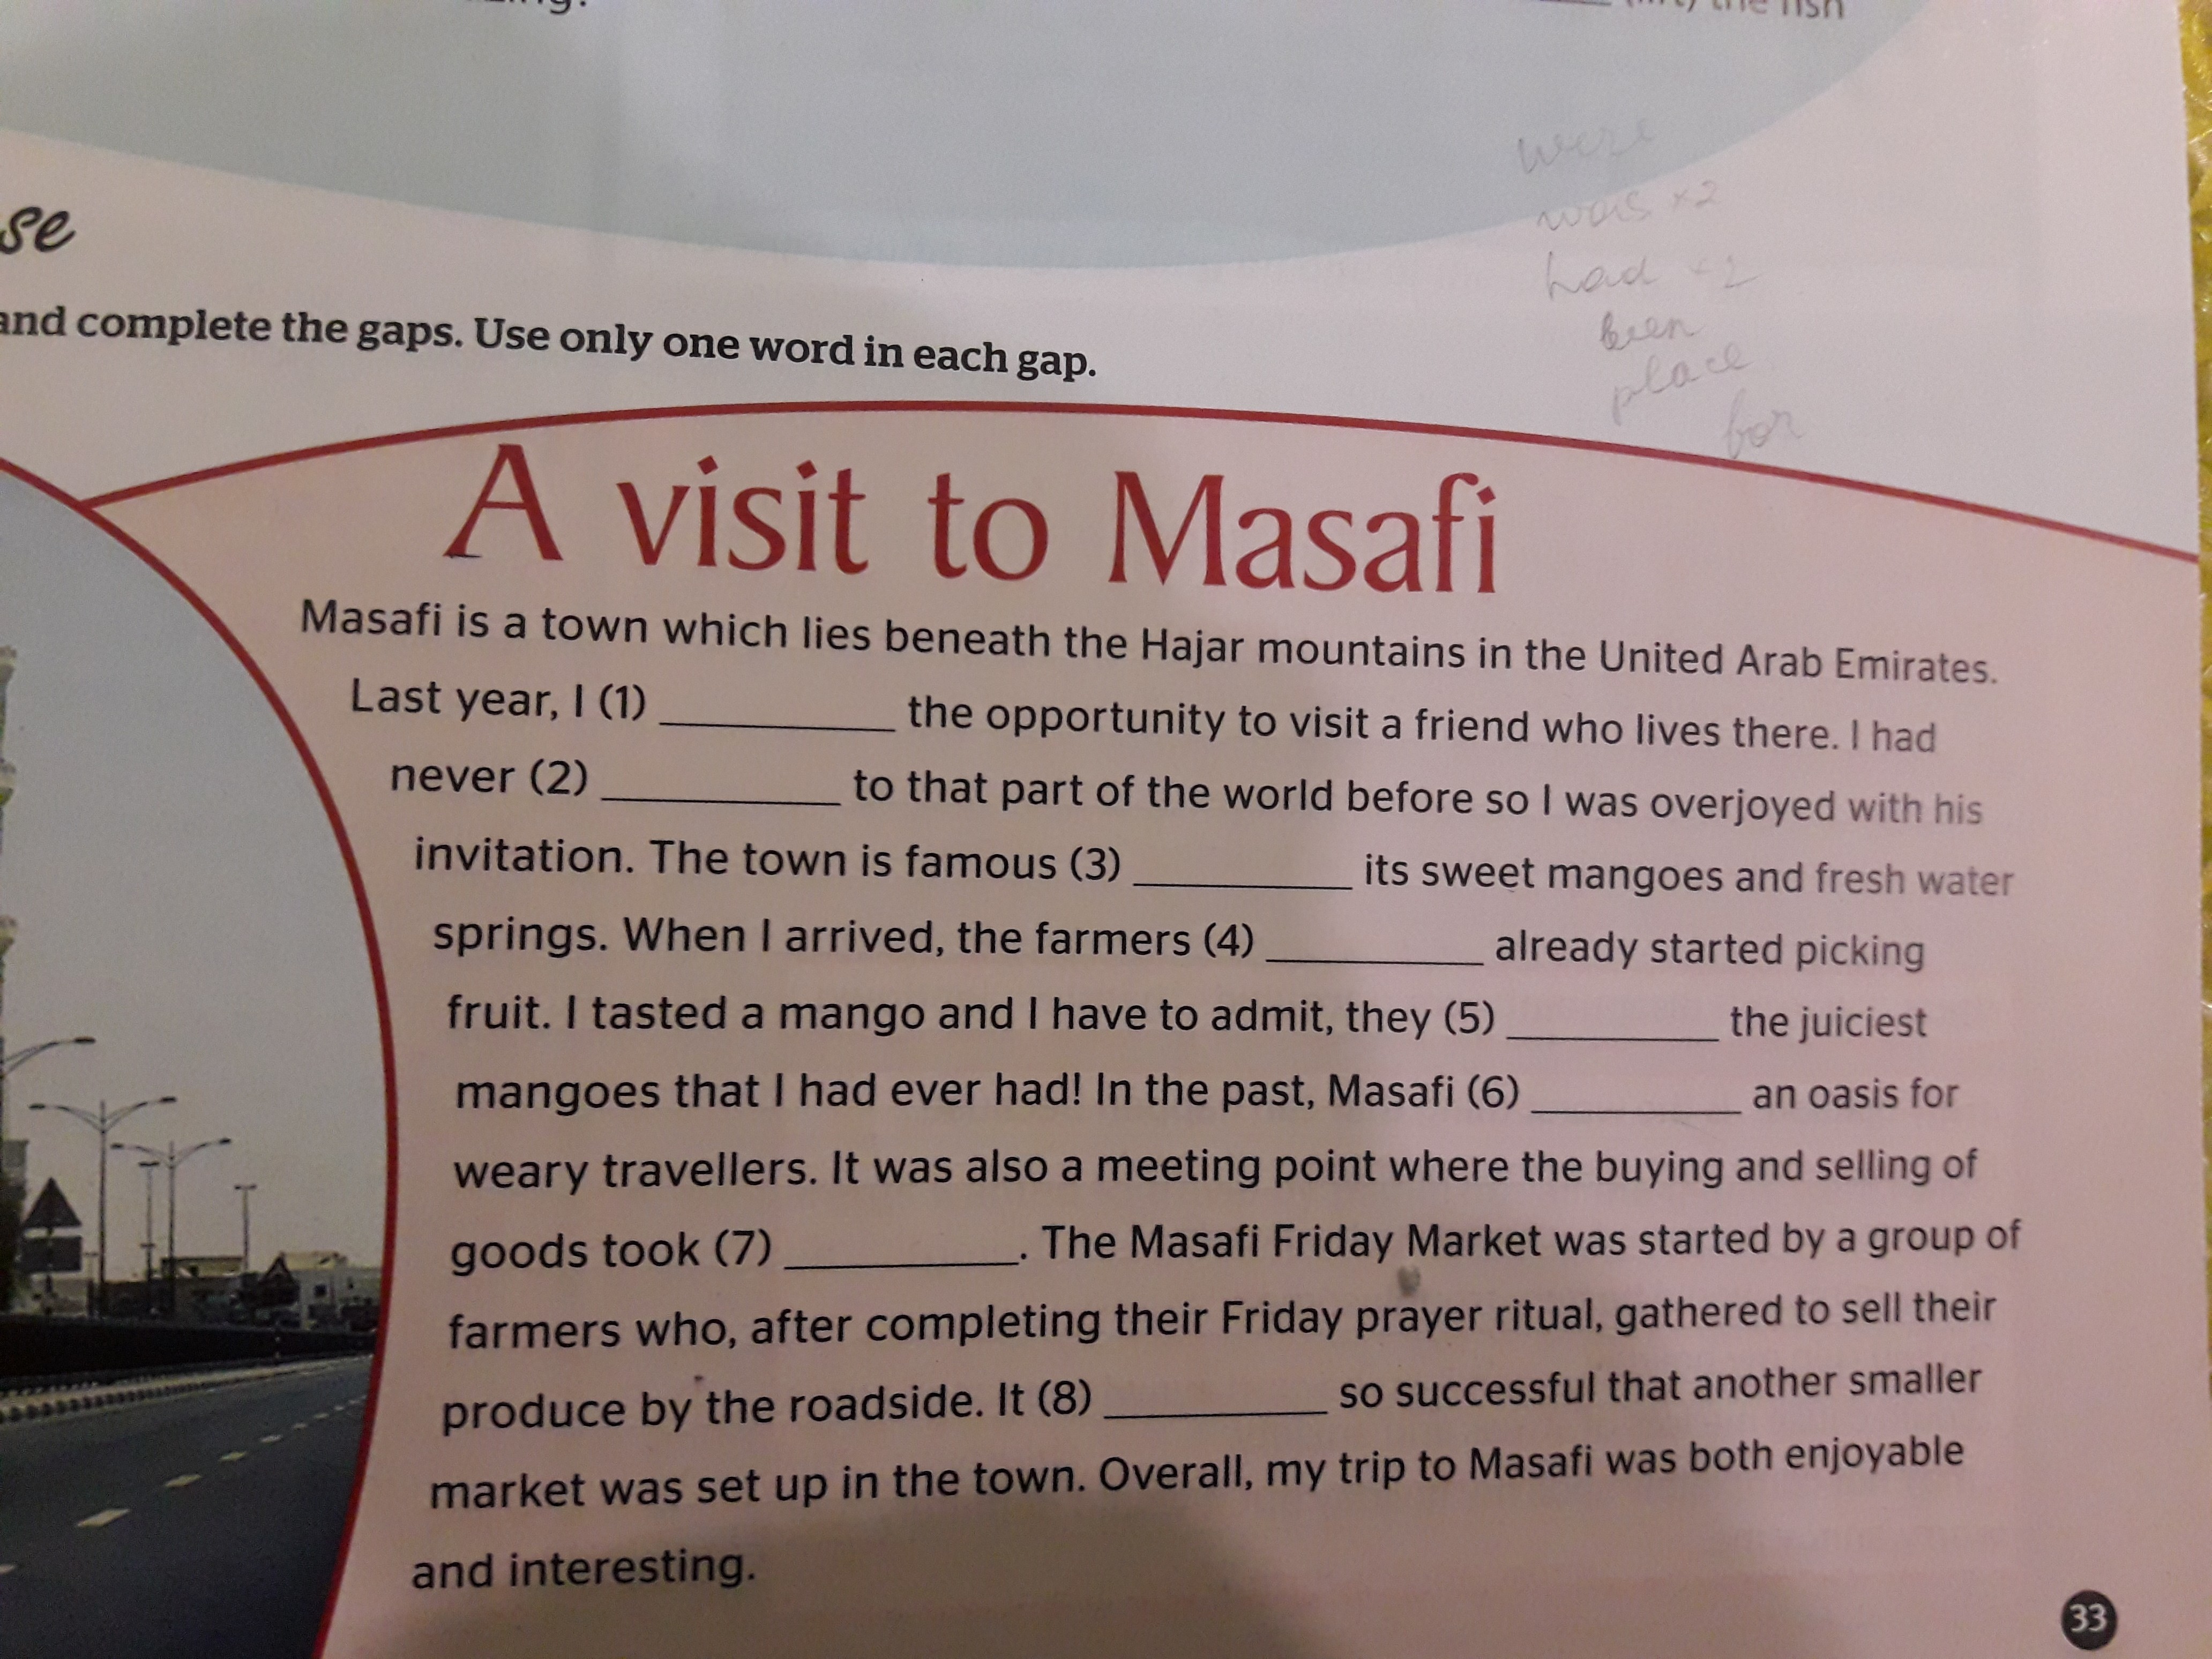 the fish
were
was x2
had x2
been
place
for
se
and complete the gaps. Use only one word in each gap.
A visit to Masafi
Masafi is a town which lies beneath the Hajar mountains in the United Arab Emirates.
Last year, I (1) __________ the opportunity to visit a friend who lives there. I had
never (2) __________ to that part of the world before so I was overjoyed with his
invitation. The town is famous (3) __________ its sweet mangoes and fresh water
springs. When I arrived, the farmers (4) __________ already started picking
fruit. I tasted a mango and I have to admit, they (5) __________ the juiciest
mangoes that I had ever had! In the past, Masafi (6) __________ an oasis for
weary travellers. It was also a meeting point where the buying and selling of
goods took (7) __________. The Masafi Friday Market was started by a group of
farmers who, after completing their Friday prayer ritual, gathered to sell their
produce by the roadside. It (8) __________ so successful that another smaller
market was set up in the town. Overall, my trip to Masafi was both enjoyable
and interesting.
33